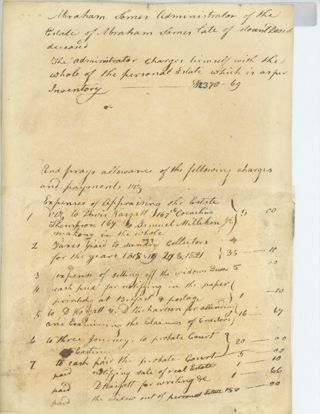 Abraham Somes Administrator of the
Estate of Abraham Somes late of Mount Desert
deceased
The administrator charges himself with the
whole of the personal Estate which is as per
Inventory 2370-69
And prays allowance of the following charges
and payments viz
Expenses of Appraising the Estate
1 viz to Davis Wasgatt 167 Cornelius
Thompson 167 & Samuel Milliken
making in the whole 5 00
2 Taxes paid to sundry Collectors
for the years 1818 19 20 & 1821 35
3 expense of setting off the widows Dower 5 00
4 cash paid for notifying in the paper
printed at Belfast & postage 1 10
5 to D Wasgatt & D Richardson for attending
and Examining the Claims of Creditors 16 67
6 to three journeys to probate Court
Castine 20 00
7 to cash paid the probate Court 5 00
paid notifying sale of real Estate 1 10
paid D Wasgatt for writing &c 1 66
paid the widow out of personal Estate 150 00